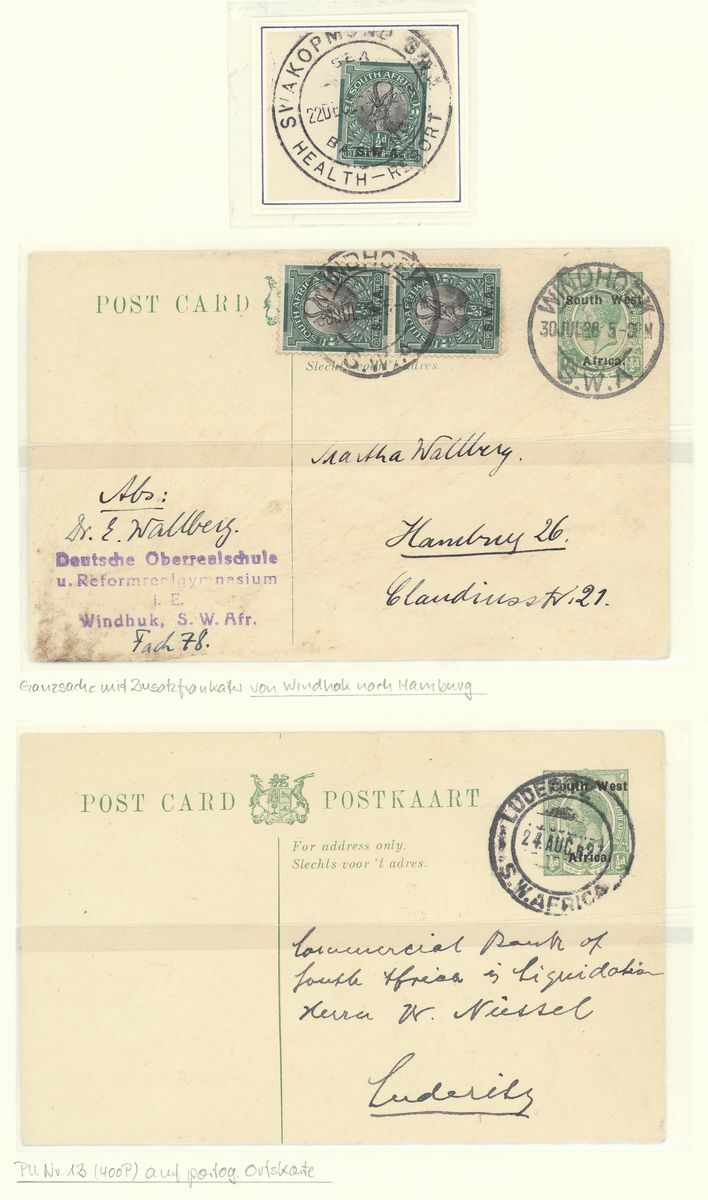 SWAKOPMUND S.W.A.
SEA
22DE
BA
HEALTH-RESORT
SOUTH AFRICA
S.W.A.
POST CARD
WINDHOEK
30JUL
S.W.A.
SOUTH AFRICA
S.W.A.
SUIDAFRIKA
S.W.A.
WINDHOEK
30JUL28 5-
S.W.A.
South West
Africa.
Slechts voor 't adres.
Martha Wallberg.
Hamburg 26.
Claudiusstr. 21.
Abs:
Dr. E. Wallberg.
Deutsche Oberrealschule
u. Reformrealgymnasium
i. E.
Windhuk, S. W. Afr.
Fach 78.
Ganzsache mit Zusatzfrankatur von Windhuk nach Hamburg
POST CARD
POSTKAART
For address only.
Slechts voor 't adres.
South West
Africa.
LUDERITZ
24 AUG
S.W.AFRICA
Commercial Bank of
South Africa in Liquidation
Herrn W. Niessel
Luderitz
PU Nr. 13 (400P) auf portog. Ortskarte